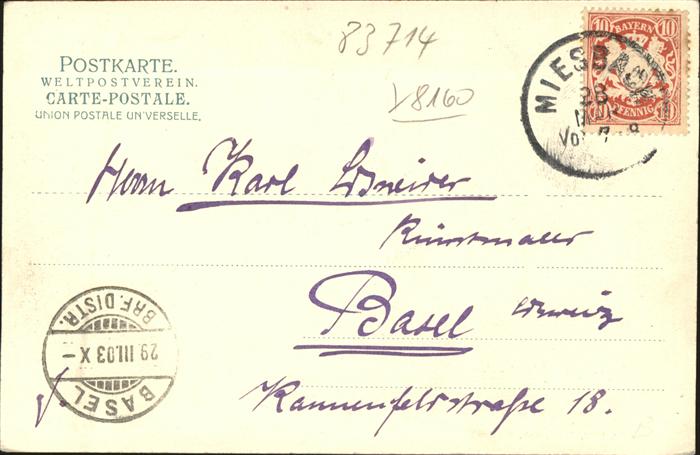 83714
V8160
POSTKARTE.
WELTPOSTVEREIN.
CARTE-POSTALE.
UNION POSTALE UNIVERSELLE.
10 BAYERN 10
PFENNIG
MIESBACH
28
Vor. 7-8
Herrn Karl Schneider
Kunstmaler
Basel Schweiz
Kannenfeldstraße 18.
BASEL
29.III.03 X-
BRF. DISTR.